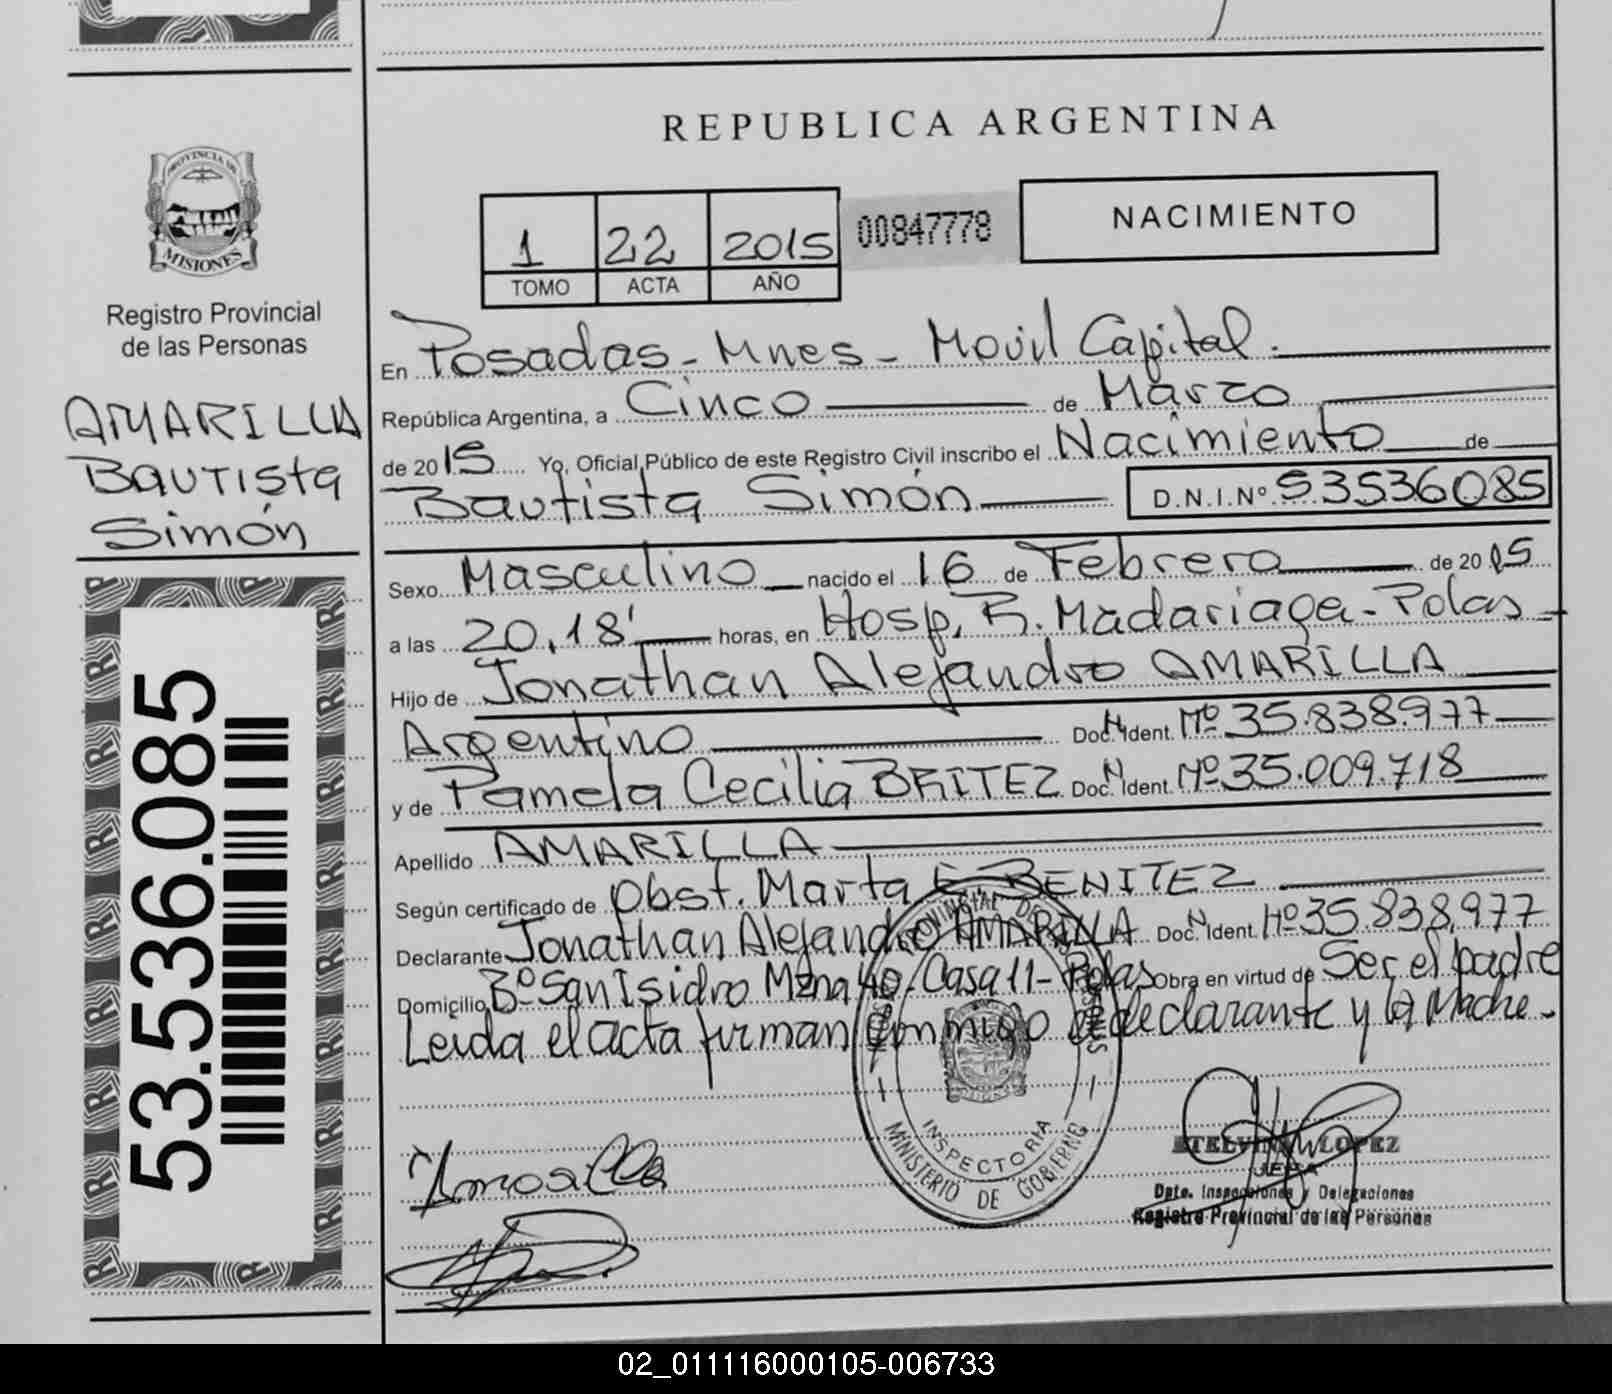 REPUBLICA ARGENTINA
PROVINCIA DE
MISIONES
Registro Provincial
de las Personas
AMARILLA
Bautista
Simón
53.536.085
1 22 2015
TOMO ACTA AÑO
00847778
NACIMIENTO
En Posadas - Mnes - Movil Capital.
República Argentina, a Cinco de Marzo
de 2015 Yo, Oficial Público de este Registro Civil inscribo el Nacimiento de
Bautista Simón D.N.I.Nº 53536085
Sexo Masculino nacido el 16 de Febrero de 2015
a las 20,18' horas, en Hosp. R. Madariaga - Pdas -
Hijo de Jonathan Alejandro AMARILLA
Argentino Doc. N. Ident. Nº 35.838.977
y de Pamela Cecilia BRITEZ Doc. N. Ident. Nº 35.009.718
Apellido AMARILLA
Según certificado de Obst. Marta E. BENITEZ
Declarante Jonathan Alejandro AMARILLA Doc. N. Ident. Nº 35.838,977
Domicilio Bº San Isidro Mzna 40 - Casa 11 - Pdas Obra en virtud de Ser el padre
Leida el acta firman conmigo el declarante y la Madre.
INSPECTORIA
MINISTERIO DE GOBIERNO
Amarilla
LOPEZ
JEFA
Dpto. Inspecciones y Delegaciones
Registro Provincial de las Personas
02_011116000105-006733